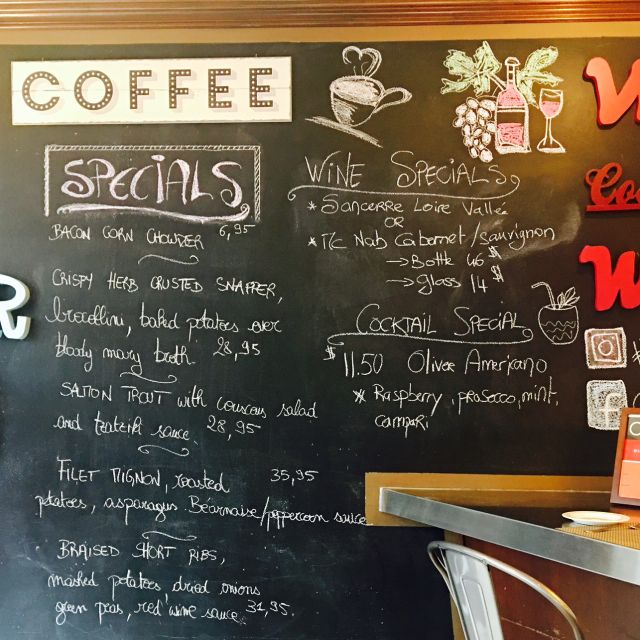 COFFEE
SPECIALS
BACON CORN CHOWDER 6,95
CRISPY HERB CRUSTED SNAPPER,
brocollini, baked potatoes over
bloody mary broth. 28,95
SALMON TROUT with couscous salad
and tzatziki sauce. 28,95
FILET MIGNON, roasted 35,95
potatoes, asparagus Béarnaise/peppercorn sauce
BRAISED SHORT RIBS,
mashed potatoes, dried onions
green peas, red wine sauce. 31,95.
WINE SPECIALS
* Sancerre Loire Vallée
OR
* Mc Nab Cabernet/sauvignon
→ Bottle 46$
→ glass 14$
COCKTAIL SPECIAL
$11.50 Olivee Americano
* Raspberry, prosecco, mint,
campari
R
W
Co
W